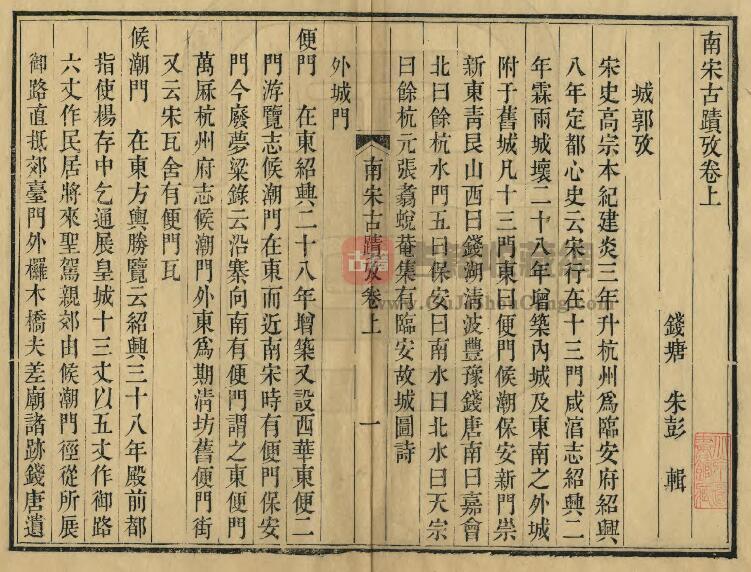 南宋古蹟攷卷上
錢塘 朱彭 輯
城郭攷
宋史高宗本紀建炎三年升杭州爲臨安府紹興
八年定都心史云宋行在十三門咸淳志紹興二
年霖雨城壞二十八年增築內城及東南之外城
附于舊城凡十三門東曰便門候潮保安新門崇
新東青艮山西曰錢湖清波豐豫錢唐南曰嘉會
北曰餘杭水門五曰保安曰南水曰北水曰天宗
曰餘杭元張翥蛻菴集有臨安故城圖詩
外城門
南宋古蹟攷卷上 一
便門 在東紹興二十八年增築又設西華東便二
門游覽志候潮門在東而近南宋時有便門保安
門今廢夢粱錄云沿寨向南有便門謂之東便門
萬厤杭州府志候潮門外東爲期淸坊舊便門街
又云宋瓦舍有便門瓦
候潮門 在東方輿勝覽云紹興三十八年殿前都
指使楊存中乞通展皇城十三丈以五丈作御路
六丈作民居將來聖駕親郊由候潮門徑從所展
御路直抵郊臺門外欏木橋夫差廟諸跡錢唐遺